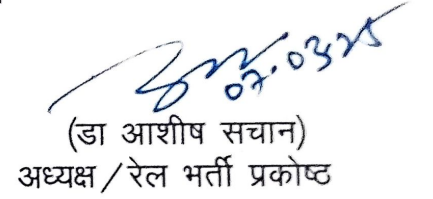 07.03.25
(डा आशीष सचान)
अध्यक्ष/रेल भर्ती प्रकोष्ठ